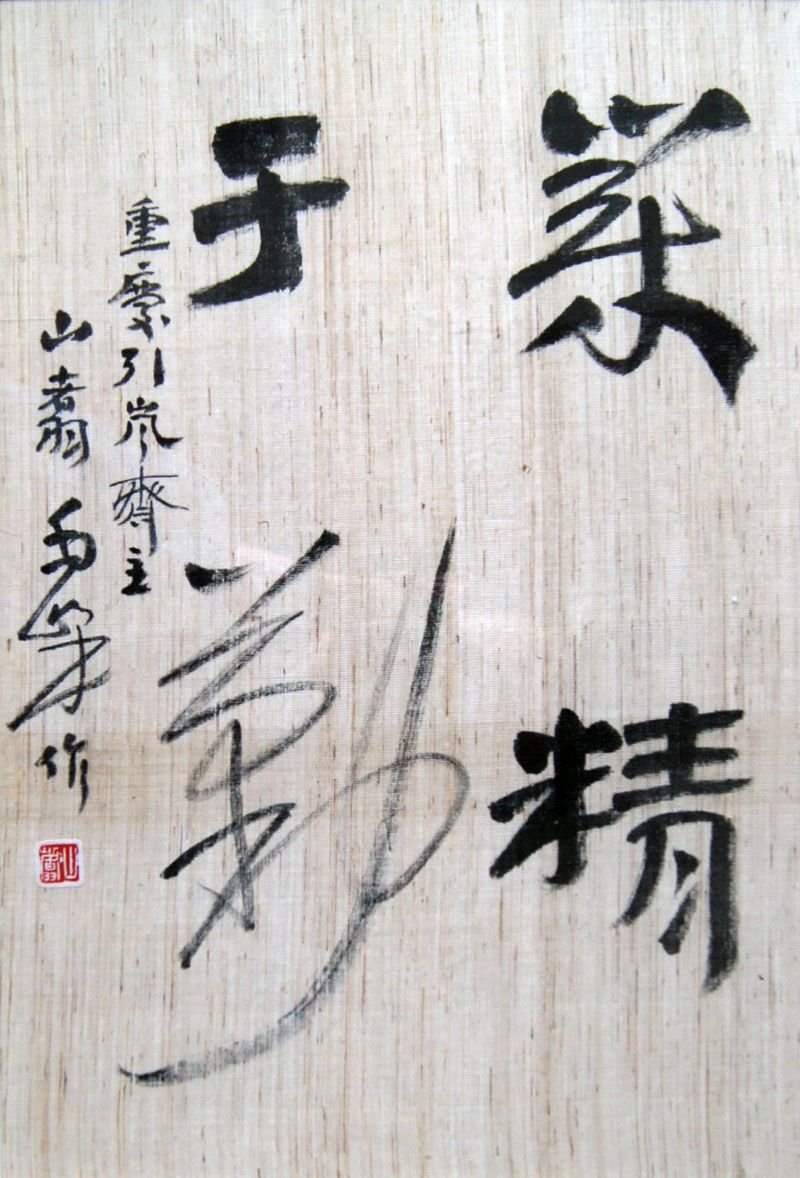 業精
于勤
重慶引嵐齋主
山翥作